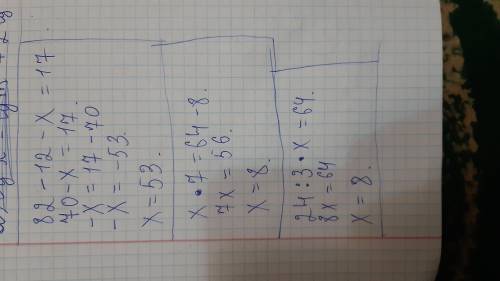 82 - 12 - x = 17
70 - x = 17.
-x = 17 - 70
-x = -53.
x = 53.
x • 7 = 64 - 8.
7x = 56.
x = 8.
24 : 3 • x = 64.
8x = 64
x = 8.